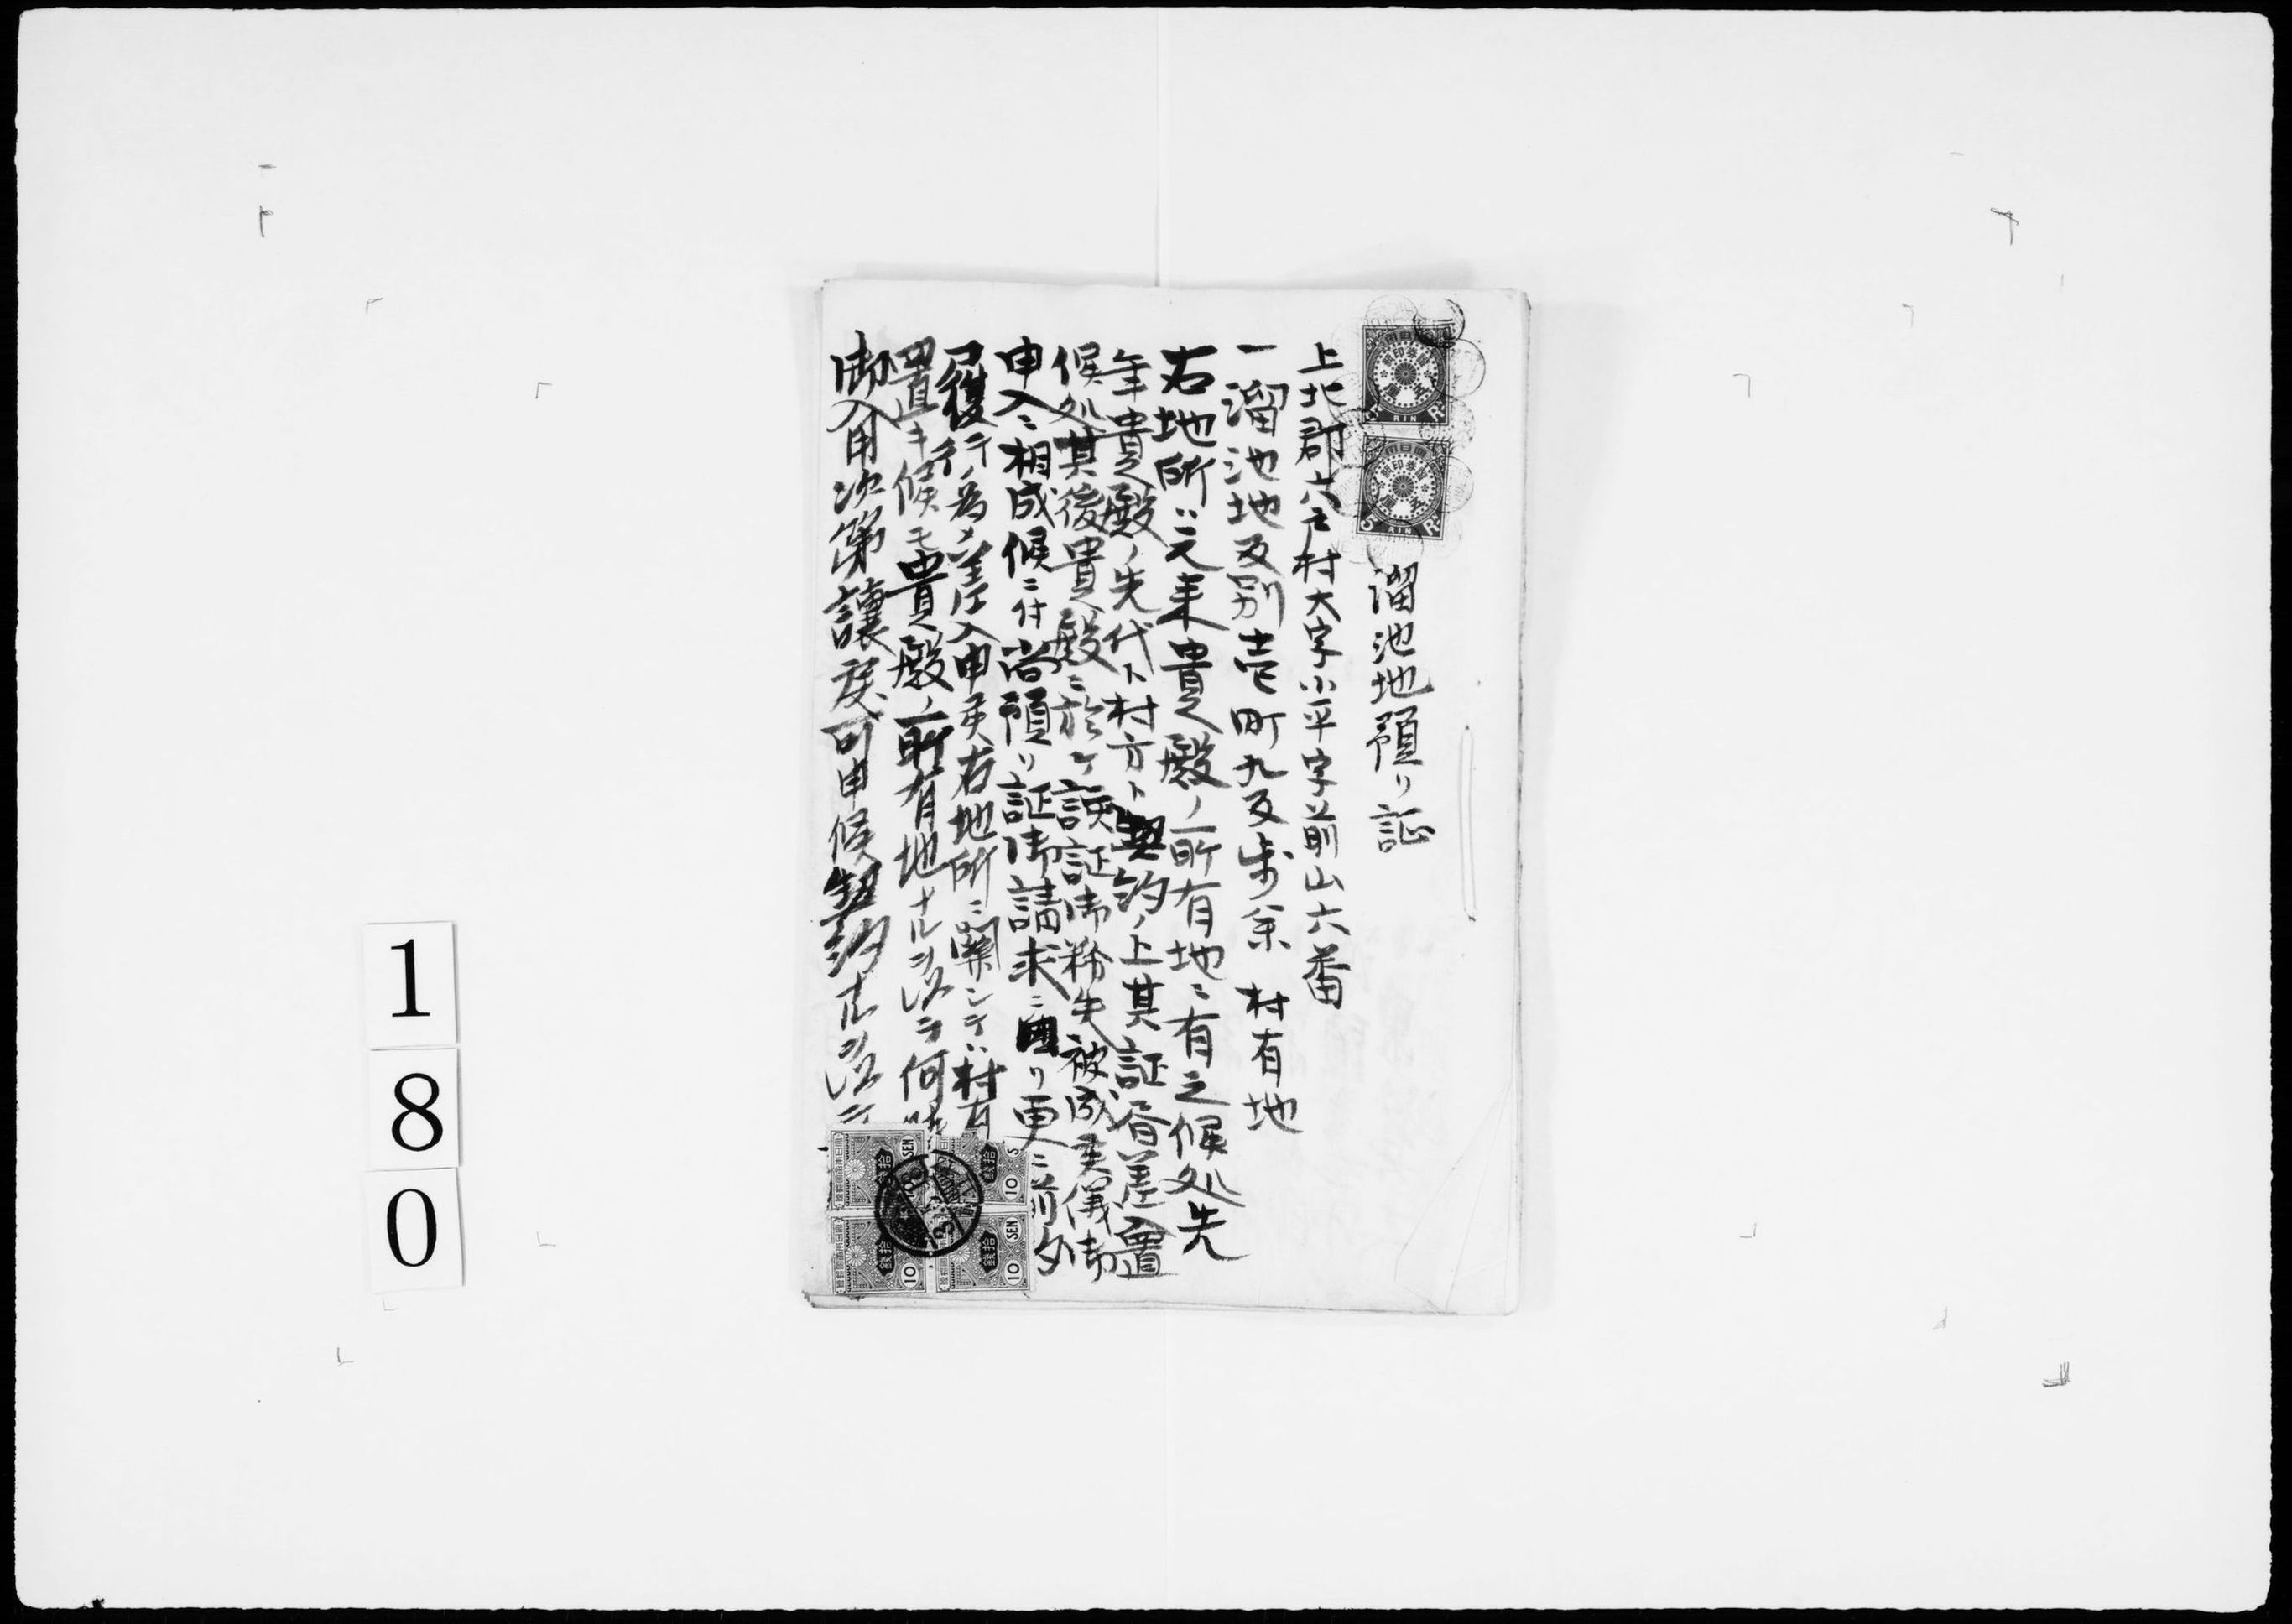 溜池地預リ証
上北郡六戸村大字小平字前山六番
一溜池地反別壱町九反歩余 村有地
右地所ハ元来貴殿ノ所有地ニ有之候処先
年貴殿ノ先代ト村方ト契約ノ上其証書差入置
候処其後貴殿ニ於テ該証御粉失被成候儀御
申入ニ相成候ニ付尚預リ証御請求ニ因リ更ニ前
復テ為メ差入申候右地所ニ関シテハ村有
置キ候モ貴殿ノ所有地ナルヲ以テ何
御入用次第譲戻可申候契約ナルヲ以テ
RIN
5 RIN
SEN
拾銭
10
10
拾銭
SEN
10
拾銭
SEN
10
1
8
0